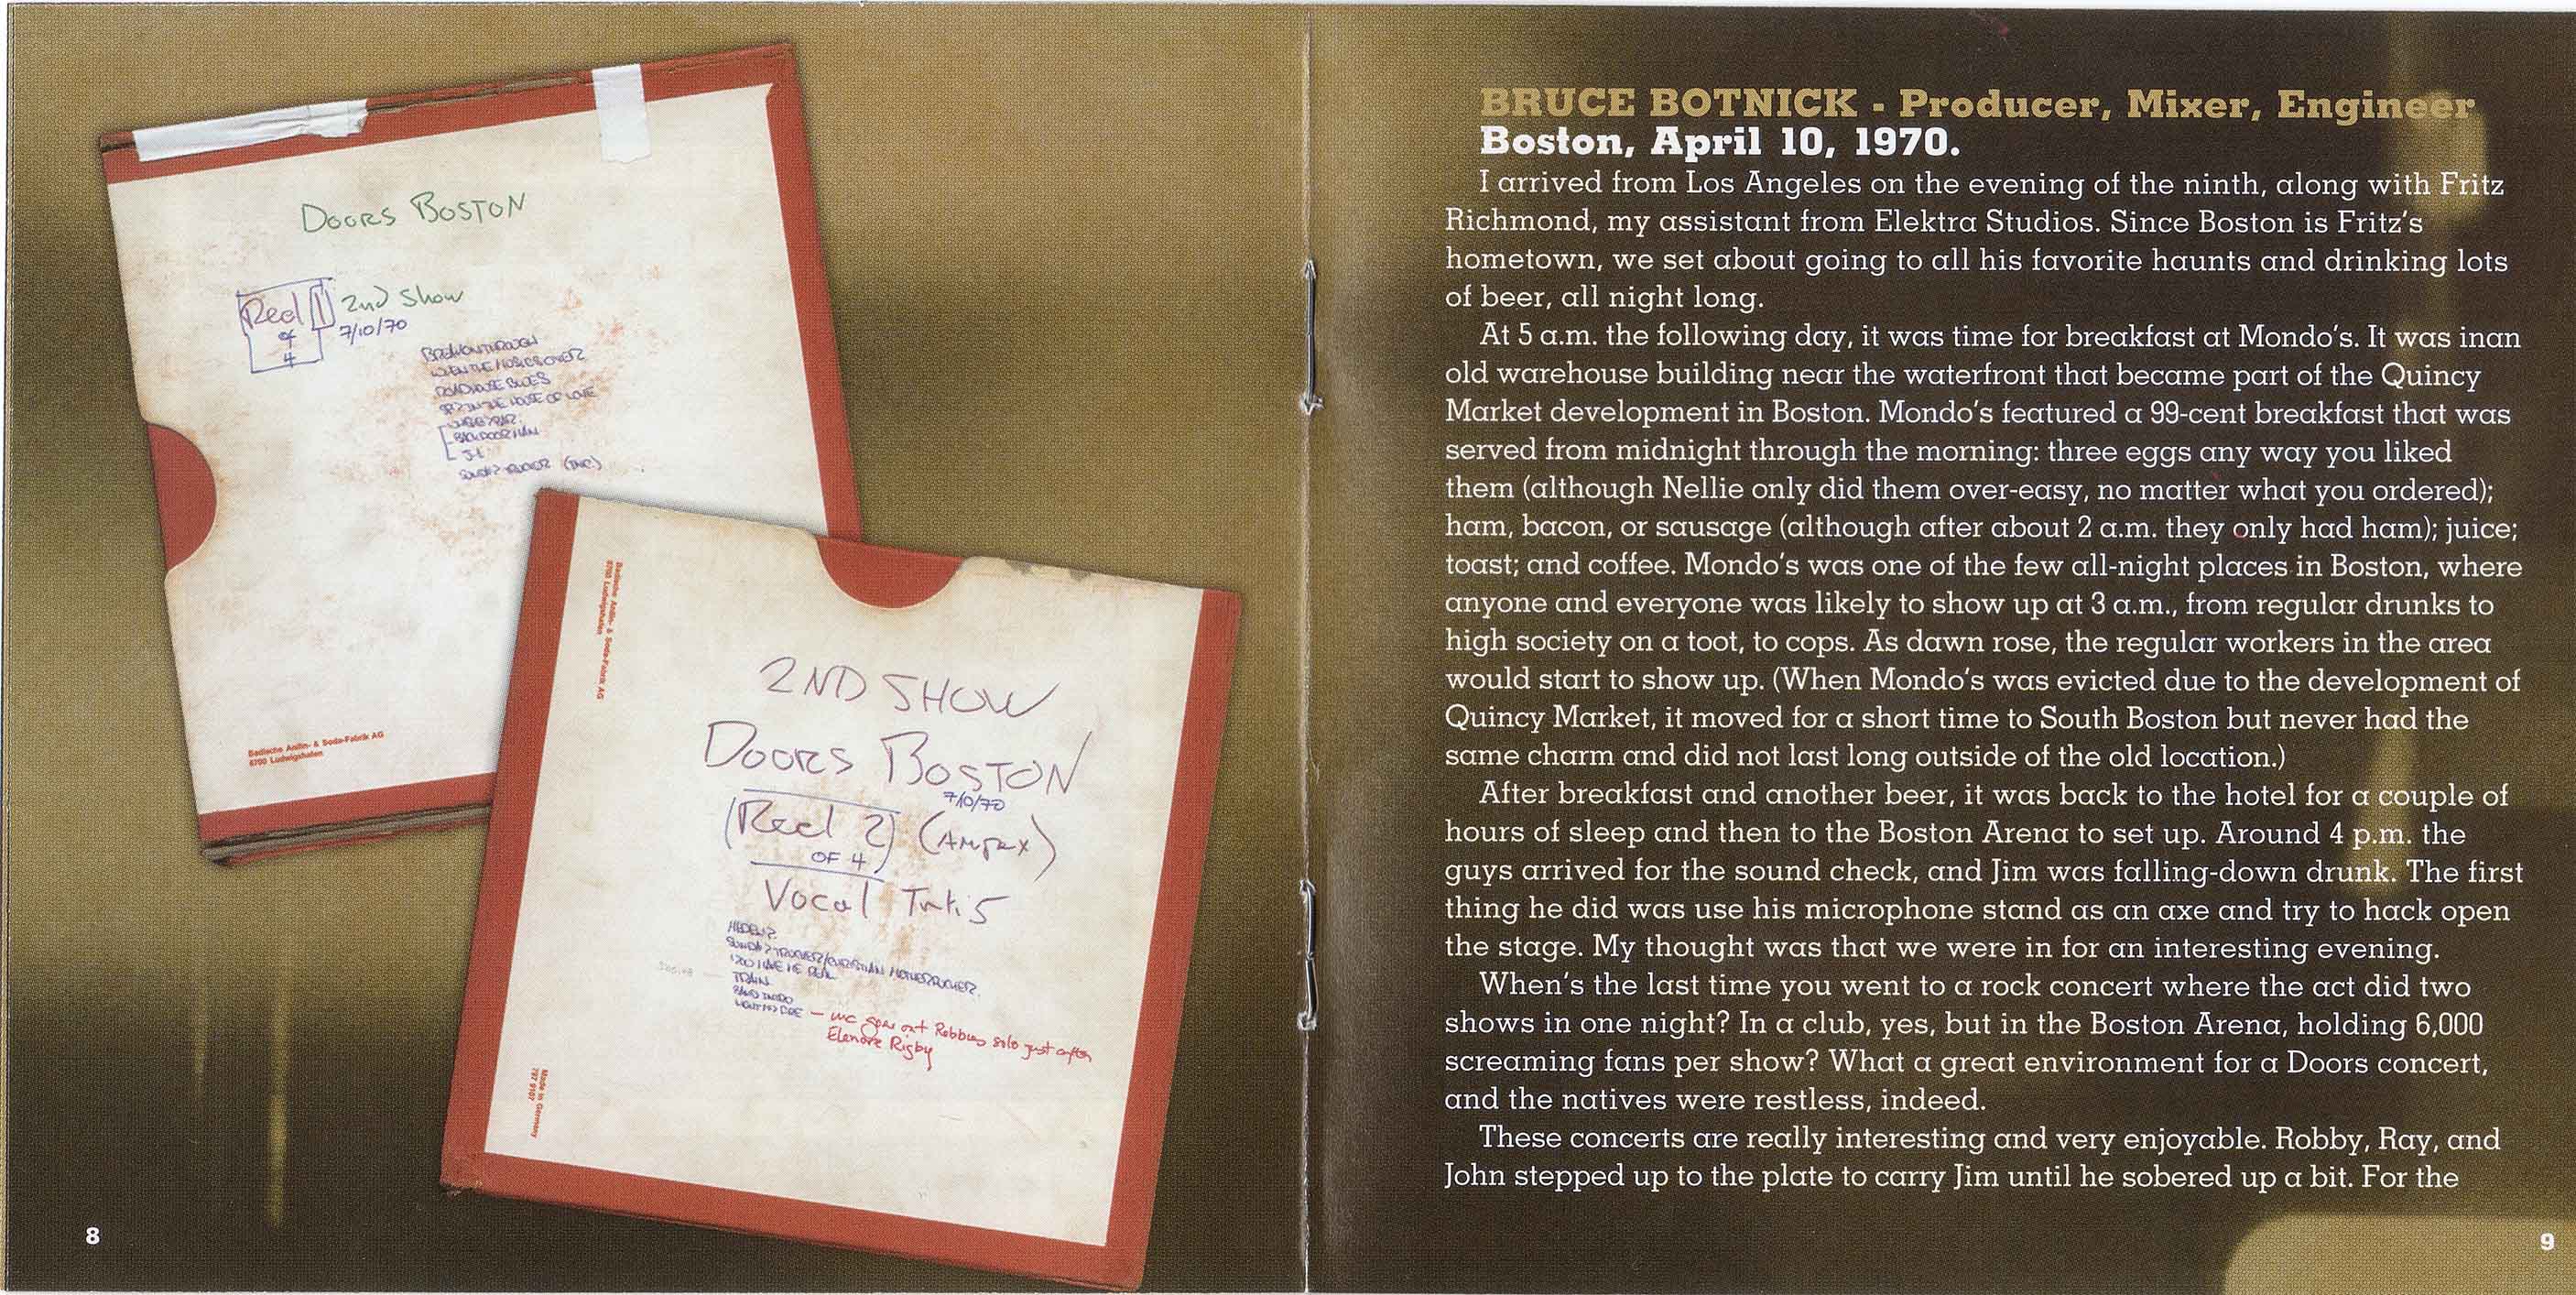 DOORS BOSTON
Reel 1 2nd Show
of 7/10/70
4
BREAKONTHROUGH
WHEN THE MUSICS OVER
ROADHOUSE BLUES
SPY IN THE HOUSE OF LOVE
BACKDOOR MAN
5-1
(INC.)
Badische Anilin- & Soda-Fabrik AG
6700 Ludwigshafen
Badische Anilin- & Soda-Fabrik AG
6700 Ludwigshafen
2ND SHOW
DOORS BOSTON
7/10/70
Reel 2 (AMPEX)
OF 4
Vocal
TRAIN
BAND INTRO
LIGHT MY FIRE — we go out Robbys solo just after
Elenore Rigby
Made in Germany
8
BRUCE BOTNICK - Producer, Mixer, Engineer
Boston, April 10, 1970.
I arrived from Los Angeles on the evening of the ninth, along with Fritz
Richmond, my assistant from Elektra Studios. Since Boston is Fritz's
hometown, we set about going to all his favorite haunts and drinking lots
of beer, all night long.
At 5 a.m. the following day, it was time for breakfast at Mondo's. It was inan
old warehouse building near the waterfront that became part of the Quincy
Market development in Boston. Mondo's featured a 99-cent breakfast that was
served from midnight through the morning: three eggs any way you liked
them (although Nellie only did them over-easy, no matter what you ordered);
ham, bacon, or sausage (although after about 2 a.m. they only had ham); juice;
toast; and coffee. Mondo's was one of the few all-night places in Boston, where
anyone and everyone was likely to show up at 3 a.m., from regular drunks to
high society on a toot, to cops. As dawn rose, the regular workers in the area
would start to show up. (When Mondo's was evicted due to the development of
Quincy Market, it moved for a short time to South Boston but never had the
same charm and did not last long outside of the old location.)
After breakfast and another beer, it was back to the hotel for a couple of
hours of sleep and then to the Boston Arena to set up. Around 4 p.m. the
guys arrived for the sound check, and Jim was falling-down drunk. The first
thing he did was use his microphone stand as an axe and try to hack open
the stage. My thought was that we were in for an interesting evening.
When's the last time you went to a rock concert where the act did two
shows in one night? In a club, yes, but in the Boston Arena, holding 6,000
screaming fans per show? What a great environment for a Doors concert,
and the natives were restless, indeed.
These concerts are really interesting and very enjoyable. Robby, Ray, and
John stepped up to the plate to carry Jim until he sobered up a bit. For the
9